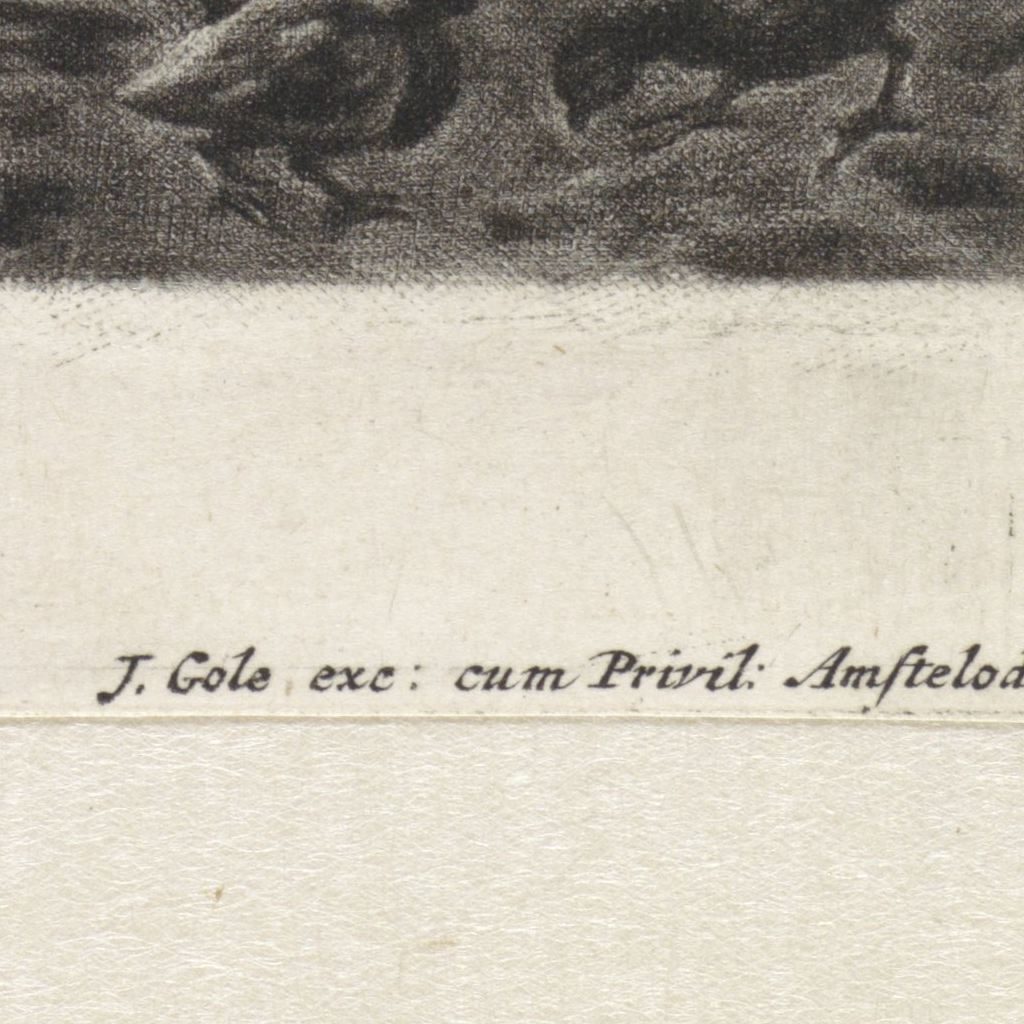 J. Gole exc: cum Privil: Amſtelod